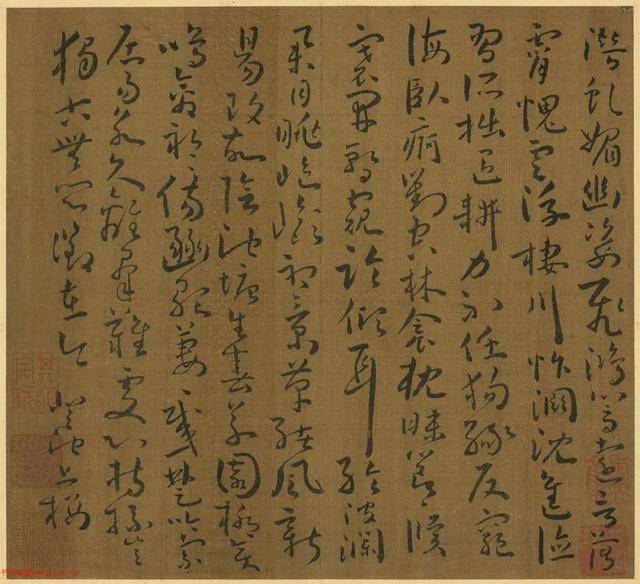 潛虬媚幽姿飛鴻響遠音薄
霄愧雲浮棲川怍淵沈進德
智所拙退耕力不任徇祿反窮
海臥痾對空林衾枕昧節候
褰開暫窺臨傾耳聆波瀾
舉目眺嶇嶔初景革緒風新
陽改故陰池塘生春草園柳變
鳴禽祁祁傷豳歌萋萋感楚吟索
居易永久離群難處心持操豈
獨古無悶徵在今 登池上樓